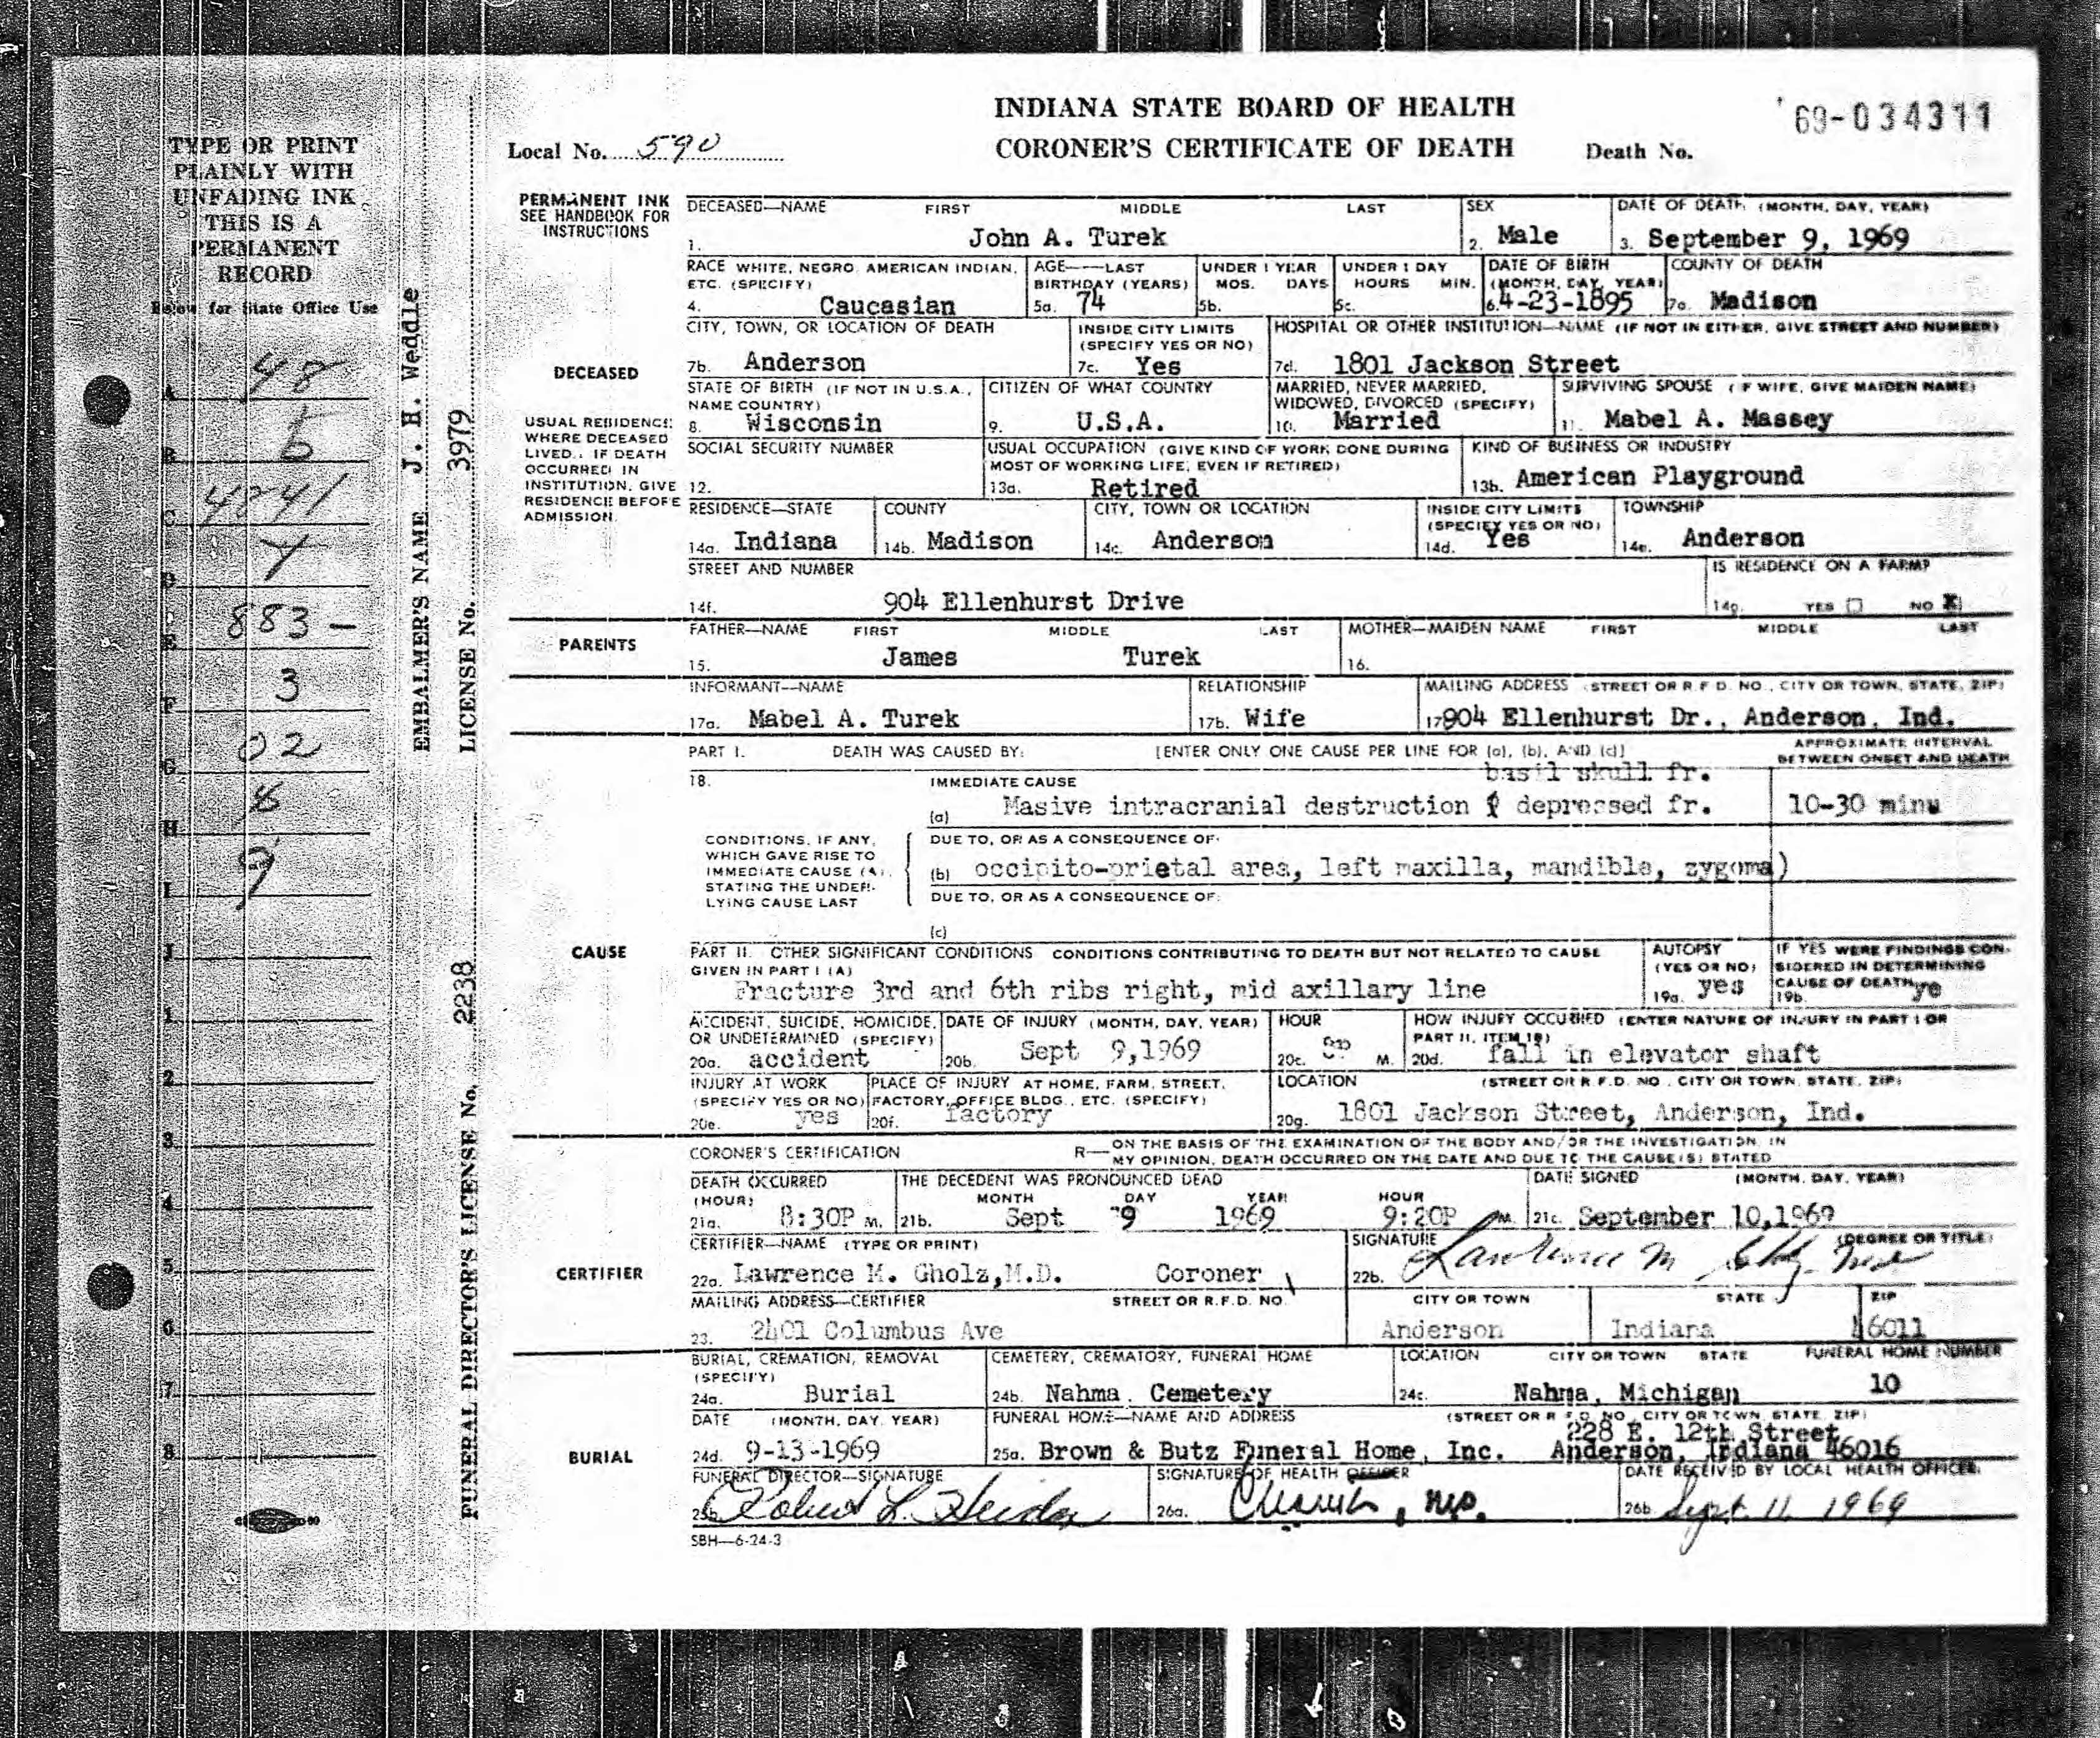 INDIANA STATE BOARD OF HEALTH
CORONER'S CERTIFICATE OF DEATH
Local No. 590
Death No. 69-034311
TYPE OR PRINT
PLAINLY WITH
UNFADING INK
THIS IS A
PERMANENT
RECORD
Below for State Office Use
A 48
B 5
C 4241
D
E 883-
F 3
G 02
H
I 9
J
1
2
3
4
5
6
7
8
EMBALMER'S NAME J. H. Weddle
LICENSE No. 3979
FUNERAL DIRECTOR'S LICENSE No. 2238
PERMANENT INK
SEE HANDBOOK FOR
INSTRUCTIONS
DECEASED—NAME FIRST MIDDLE LAST SEX DATE OF DEATH (MONTH, DAY, YEAR)
1. John A. Turek 2. Male 3. September 9, 1969
RACE WHITE, NEGRO, AMERICAN INDIAN, AGE—LAST UNDER 1 YEAR UNDER 1 DAY DATE OF BIRTH COUNTY OF DEATH
ETC. (SPECIFY) BIRTHDAY (YEARS) MOS. DAYS HOURS MIN. (MONTH, DAY, YEAR)
4. Caucasian 5a. 74 5b. 5c. 6. 4-23-1895 7a. Madison
CITY, TOWN, OR LOCATION OF DEATH INSIDE CITY LIMITS HOSPITAL OR OTHER INSTITUTION—NAME (IF NOT IN EITHER, GIVE STREET AND NUMBER)
(SPECIFY YES OR NO)
7b. Anderson 7c. Yes 7d. 1801 Jackson Street
DECEASED
STATE OF BIRTH (IF NOT IN U.S.A., CITIZEN OF WHAT COUNTRY MARRIED, NEVER MARRIED, SURVIVING SPOUSE (IF WIFE, GIVE MAIDEN NAME)
NAME COUNTRY) WIDOWED, DIVORCED (SPECIFY)
8. Wisconsin 9. U.S.A. 10. Married 11. Mabel A. Massey
USUAL RESIDENCE
WHERE DECEASED
LIVED. IF DEATH
OCCURRED IN
INSTITUTION, GIVE
RESIDENCE BEFORE
ADMISSION.
SOCIAL SECURITY NUMBER USUAL OCCUPATION (GIVE KIND OF WORK DONE DURING KIND OF BUSINESS OR INDUSTRY
MOST OF WORKING LIFE, EVEN IF RETIRED)
12. 13a. Retired 13b. American Playground
RESIDENCE—STATE COUNTY CITY, TOWN OR LOCATION INSIDE CITY LIMITS TOWNSHIP
(SPECIFY YES OR NO)
14a. Indiana 14b. Madison 14c. Anderson 14d. Yes 14e. Anderson
STREET AND NUMBER IS RESIDENCE ON A FARM?
14f. 904 Ellenhurst Drive 14g. YES ☐ NO X
PARENTS
FATHER—NAME FIRST MIDDLE LAST MOTHER—MAIDEN NAME FIRST MIDDLE LAST
15. James Turek 16.
INFORMANT—NAME RELATIONSHIP MAILING ADDRESS (STREET OR R.F.D. NO., CITY OR TOWN, STATE, ZIP)
17a. Mabel A. Turek 17b. Wife 17 904 Ellenhurst Dr., Anderson, Ind.
PART I. DEATH WAS CAUSED BY: [ENTER ONLY ONE CAUSE PER LINE FOR (a), (b), AND (c)] APPROXIMATE INTERVAL
BETWEEN ONSET AND DEATH
18. IMMEDIATE CAUSE basil skull fr.
(a) Masive intracranial destruction depressed fr. 10-30 minu
CONDITIONS, IF ANY,
WHICH GAVE RISE TO
IMMEDIATE CAUSE (A),
STATING THE UNDER-
LYING CAUSE LAST
DUE TO, OR AS A CONSEQUENCE OF:
(b) occipito-prietal area, left maxilla, mandible, zygoma)
DUE TO, OR AS A CONSEQUENCE OF:
(c)
CAUSE
PART II. OTHER SIGNIFICANT CONDITIONS CONDITIONS CONTRIBUTING TO DEATH BUT NOT RELATED TO CAUSE AUTOPSY IF YES WERE FINDINGS CON-
GIVEN IN PART I (A) (YES OR NO) SIDERED IN DETERMINING
CAUSE OF DEATH
Fracture 3rd and 6th ribs right, mid axillary line 19a. yes 19b. ye
ACCIDENT, SUICIDE, HOMICIDE, DATE OF INJURY (MONTH, DAY, YEAR) HOUR HOW INJURY OCCURRED (ENTER NATURE OF INJURY IN PART I OR
OR UNDETERMINED (SPECIFY) PART II, ITEM 18)
20a. accident 20b. Sept 9,1969 20c. M. 20d. fall in elevator shaft
INJURY AT WORK PLACE OF INJURY AT HOME, FARM, STREET, LOCATION (STREET OR R.F.D. NO., CITY OR TOWN, STATE, ZIP)
(SPECIFY YES OR NO) FACTORY, OFFICE BLDG., ETC. (SPECIFY)
20e. yes 20f. factory 20g. 1801 Jackson Street, Anderson, Ind.
CORONER'S CERTIFICATION R— ON THE BASIS OF THE EXAMINATION OF THE BODY AND/OR THE INVESTIGATION, IN
MY OPINION, DEATH OCCURRED ON THE DATE AND DUE TO THE CAUSE(S) STATED
DEATH OCCURRED THE DECEDENT WAS PRONOUNCED DEAD DATE SIGNED (MONTH, DAY, YEAR)
(HOUR) MONTH DAY YEAR HOUR
21a. 8:30P M. 21b. Sept 9 1969 9:20P M. 21c. September 10,1969
CERTIFIER
CERTIFIER—NAME (TYPE OR PRINT) SIGNATURE (DEGREE OR TITLE)
22a. Lawrence M. Gholz,M.D. Coroner 22b. Lawrence M
MAILING ADDRESS—CERTIFIER STREET OR R.F.D. NO. CITY OR TOWN STATE ZIP
23. 2401 Columbus Ave Anderson Indiana 46011
BURIAL, CREMATION, REMOVAL CEMETERY, CREMATORY, FUNERAL HOME LOCATION CITY OR TOWN STATE FUNERAL HOME NUMBER
(SPECIFY)
24a. Burial 24b. Nahma Cemetery 24c. Nahma, Michigan 10
BURIAL
DATE (MONTH, DAY, YEAR) FUNERAL HOME—NAME AND ADDRESS (STREET OR R.F.D. NO., CITY OR TOWN, STATE, ZIP)
228 E. 12th Street
24d. 9-13-1969 25a. Brown & Butz Funeral Home, Inc. Anderson, Indiana 46016
FUNERAL DIRECTOR—SIGNATURE SIGNATURE OF HEALTH OFFICER DATE RECEIVED BY LOCAL HEALTH OFFICER
25b. Robert L. 26a. M.D. 26b. Sept. 11, 1969
SBH—6-24-3